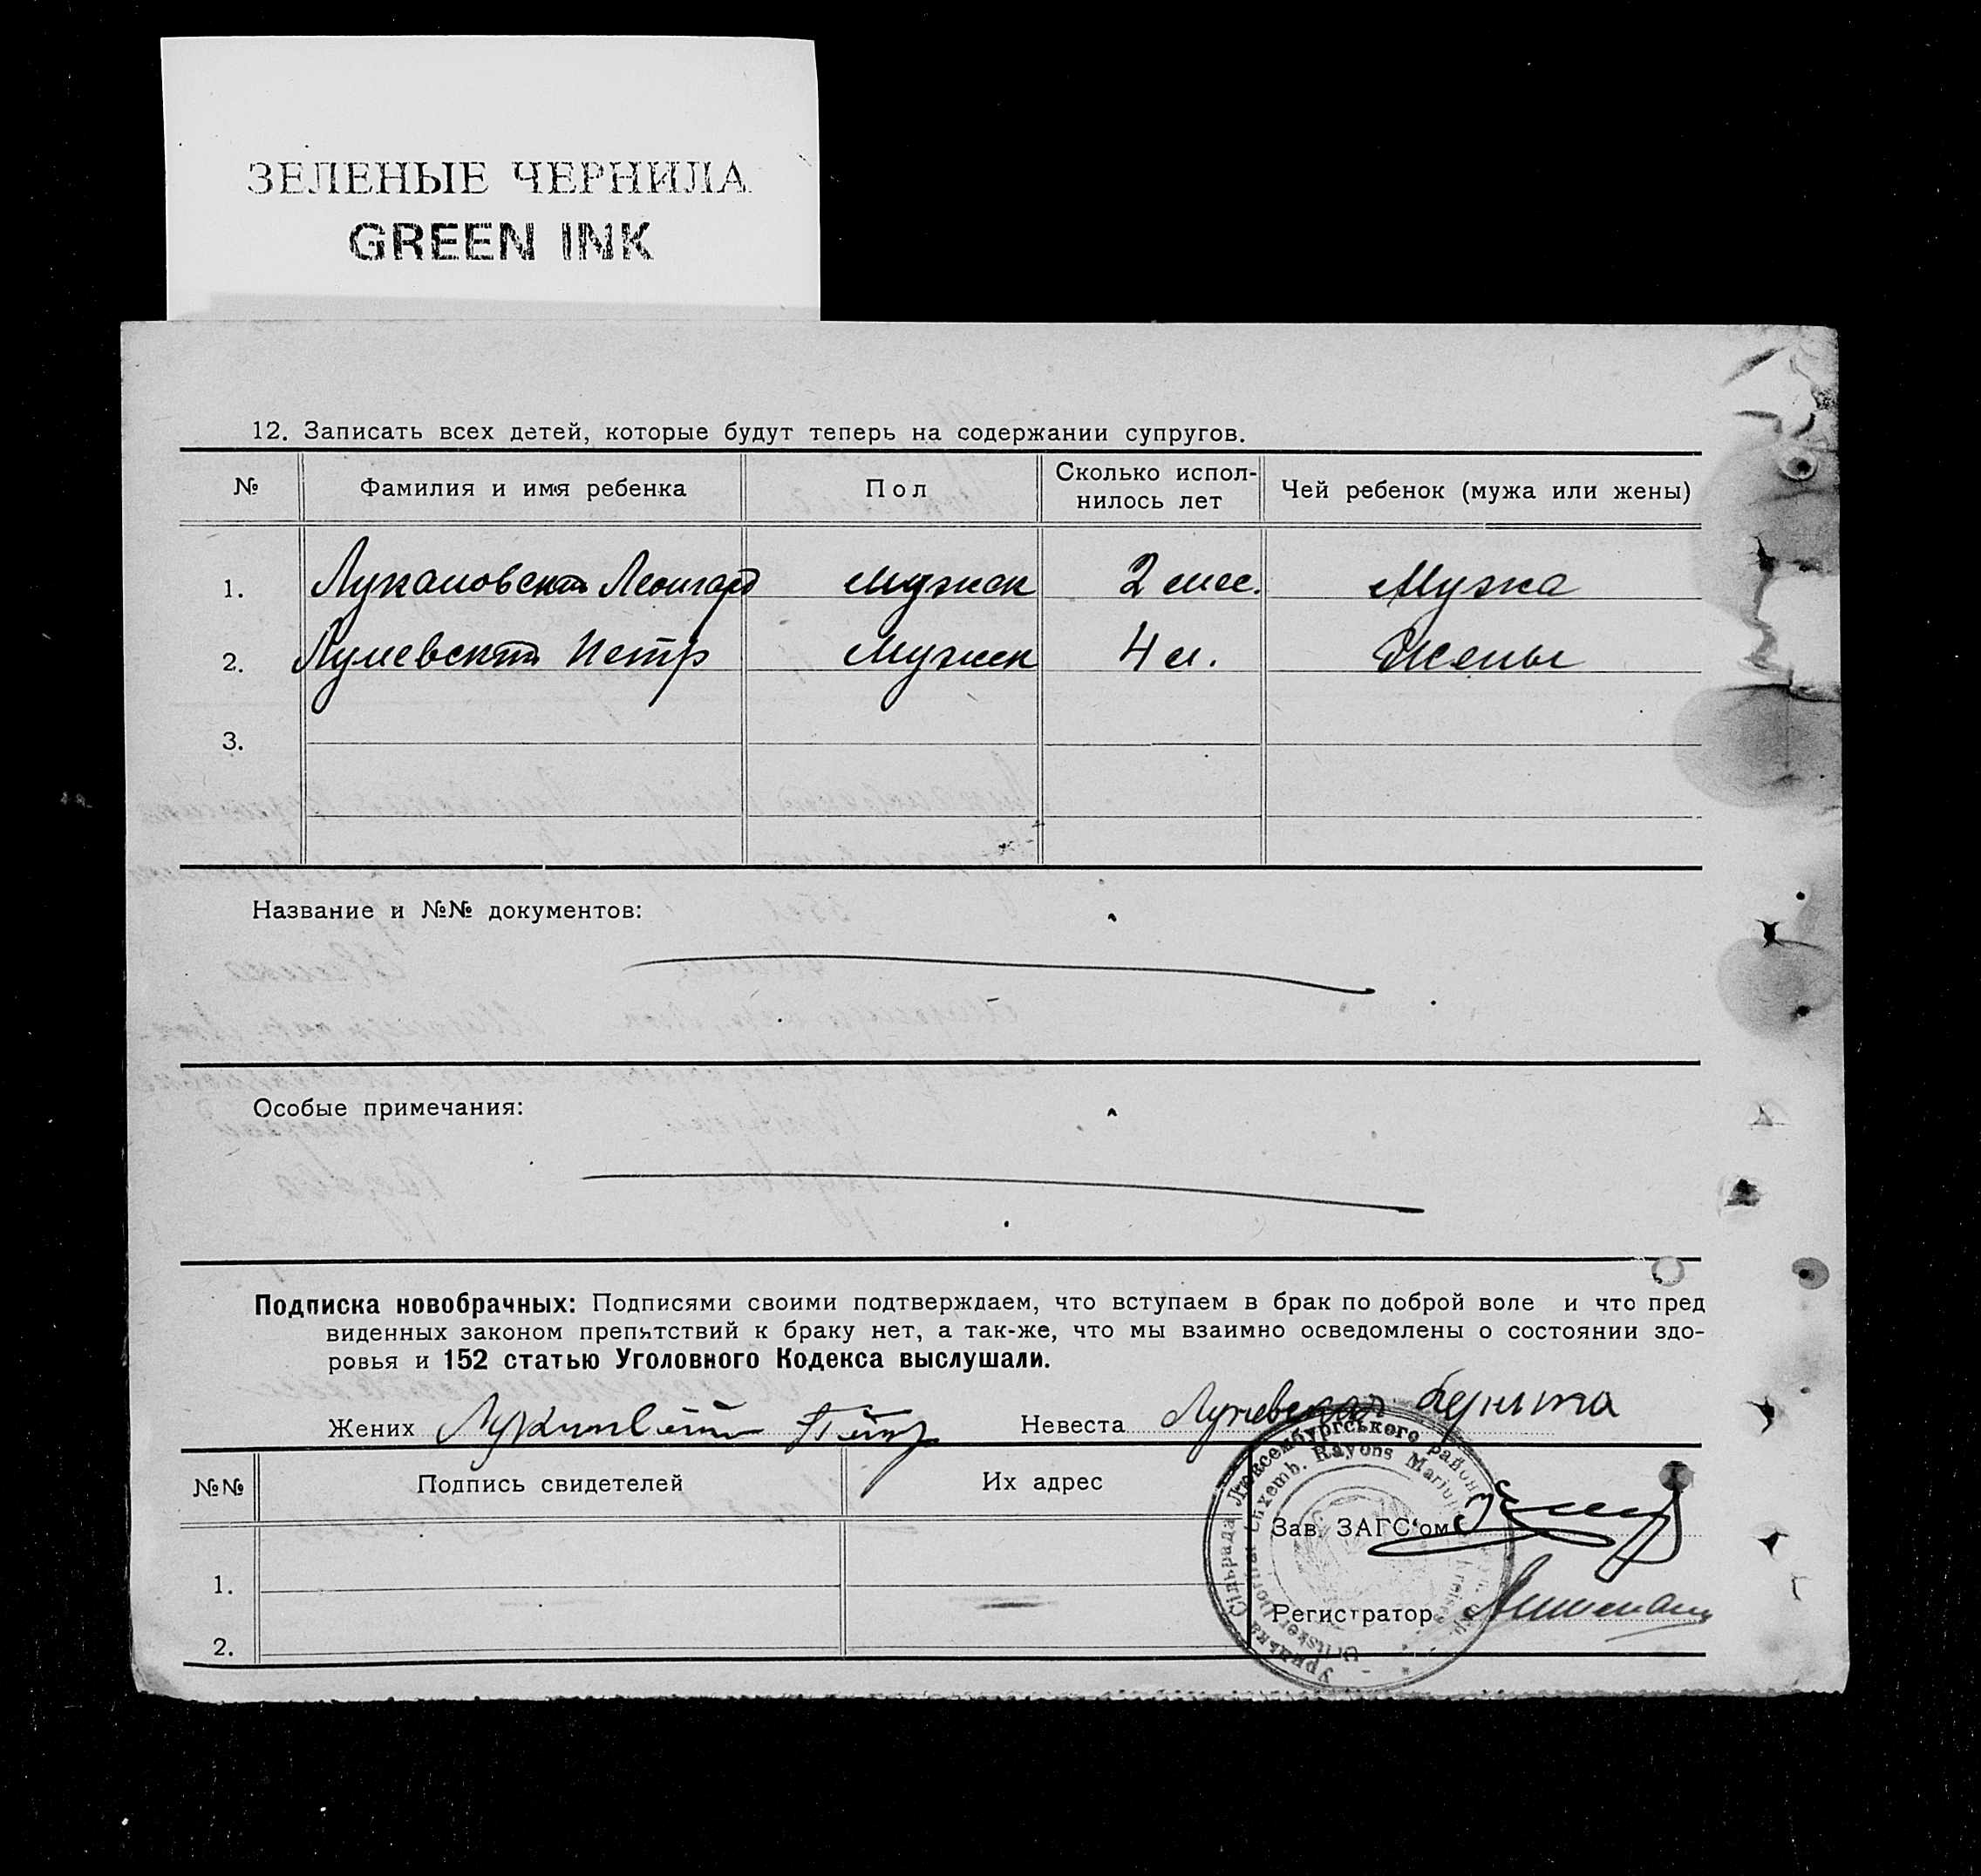 ЗЕЛЕНЫЕ ЧЕРНИЛА
GREEN INK
12. Записать всех детей, которые будут теперь на содержании супругов.
№ Фамилия и имя ребенка Пол Сколько испол-нилось лет Чей ребенок (мужа или жены)
1. Леонгард мужск 2 мес. Мужа
2. Петр мужск 4 м. Жены
3.
Название и №№ документов:
Особые примечания:
Подписка новобрачных: Подписями своими подтверждаем, что вступаем в брак по доброй воле и что пред
виденных законом препятствий к браку нет, а так-же, что мы взаимно осведомлены о состоянии здо-
ровья и 152 статью Уголовного Кодекса выслушали.
Жених Невеста
№№ Подпись свидетелей Их адрес
Люксембургського район
Rayons Mariup
Сільрада
Зав. ЗАГС'ом
1.
Регистратор
2.